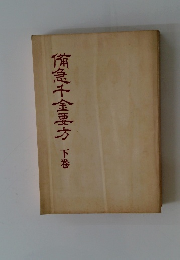 備急千金要方 下卷